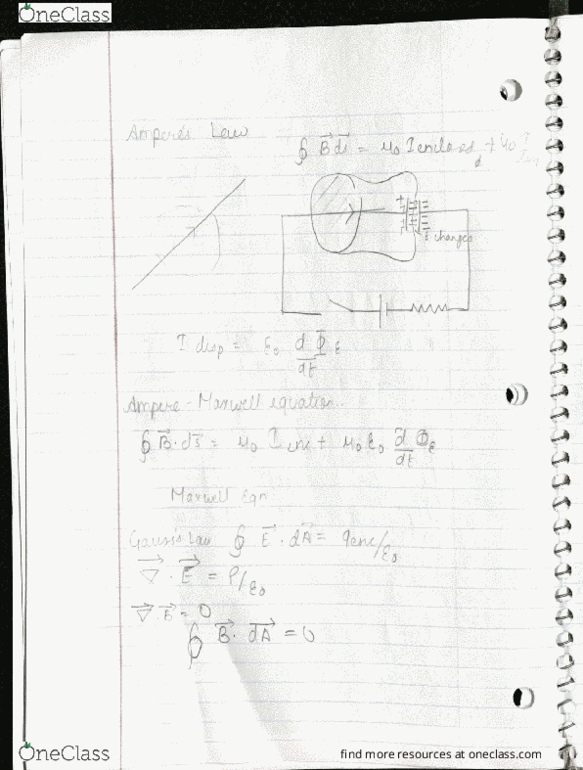 OneClass
Ampere's Law
∮ B⃗ ds⃗ = μ₀ Ienclosed + μ₀ I
+
E changes
I disp = ε₀ d Φ_E / dt
Ampere-Maxwell equation
∮ B⃗ · ds⃗ = μ₀ I enc + μ₀ ε₀ d/dt Φ_E
Maxwell Eqn
Gauss's Law ∮ E⃗ · dA⃗ = qenc/ε₀
∇⃗ · E⃗ = ρ/ε₀
∇⃗ · B⃗ = 0
∮ B⃗ · dA⃗ = 0
OneClass
find more resources at oneclass.com